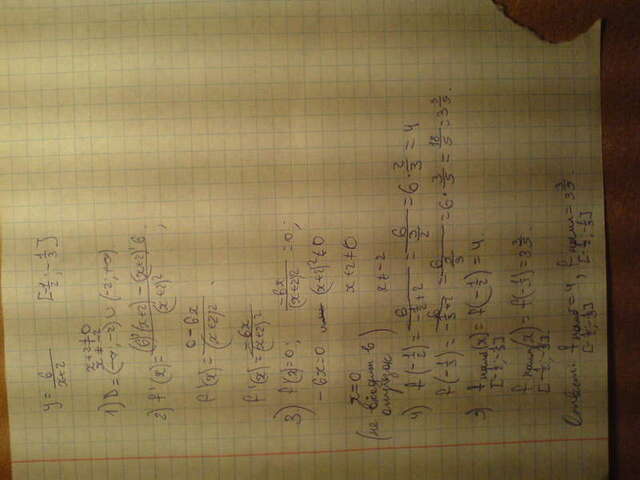 y = 6/(x+2)   [-1/2; -1/3]
x+2≠0
x≠-2
1) D = (-∞; -2) ∪ (-2; +∞)
2) f'(x) = ((6)'(x+2) - (x+2)'6)/(x+2)²;
f'(x) = (0 - 6x)/(x+2)².
f'(x) = -6x/(x+2)²
3) f'(x)=0;   -6x/(x+2)² = 0;
-6x=0   (x+2)²≠0
x=0   x+2≠0
(не входит в отрезок)   x≠-2
4) f(-1/2) = 6/(-1/2+2) = 6/(3/2) = 6·2/3 = 4
f(-1/3) = 6/(-1/3+2) = 6/(5/3) = 6·3/5 = 18/5 = 3 3/5.
5) f наиб(x) = f(-1/2) = 4.
[-1/2; -1/3]
f наим(x) = f(-1/3) = 3 3/5.
[-1/2; -1/3]
Ответ: f наиб = 4; f наим = 3 3/5.
[-1/2; -1/3]   [-1/2; -1/3]